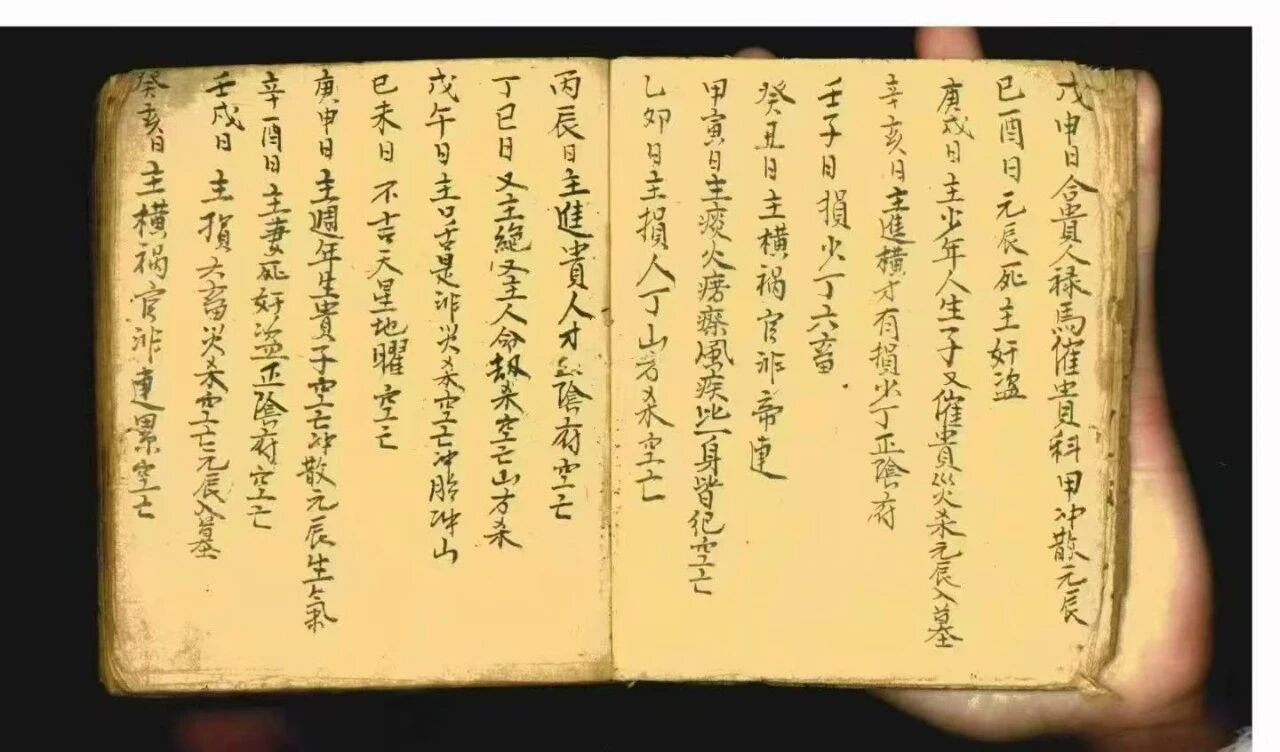 戊申日合貴人祿馬催貴科甲冲散元辰
巳酉日元辰死主奸盜
庚戌日主少年人生子又催貴災杀元辰入墓
辛亥日主進横才有損少丁正陰府
壬子日損少丁六畜
癸丑日主横禍官非帝連
甲寅日主痰火痨瘵風疾此一身皆犯空亡
乙卯日主損人丁山方杀空亡
丙辰日主進貴人才正陰府空亡
丁巳日又主絶又主人命刼杀空亡山方杀
戊午日主口舌是非災杀空亡冲胎冲山
巳未日不吉天星地曜空亡
庚申日主週年生貴子空亡冲散元辰生氣
辛酉日主妻死奸盜正陰府空亡
壬戌日主損六畜災杀空亡元辰入墓
癸亥日主横禍官非連累空亡